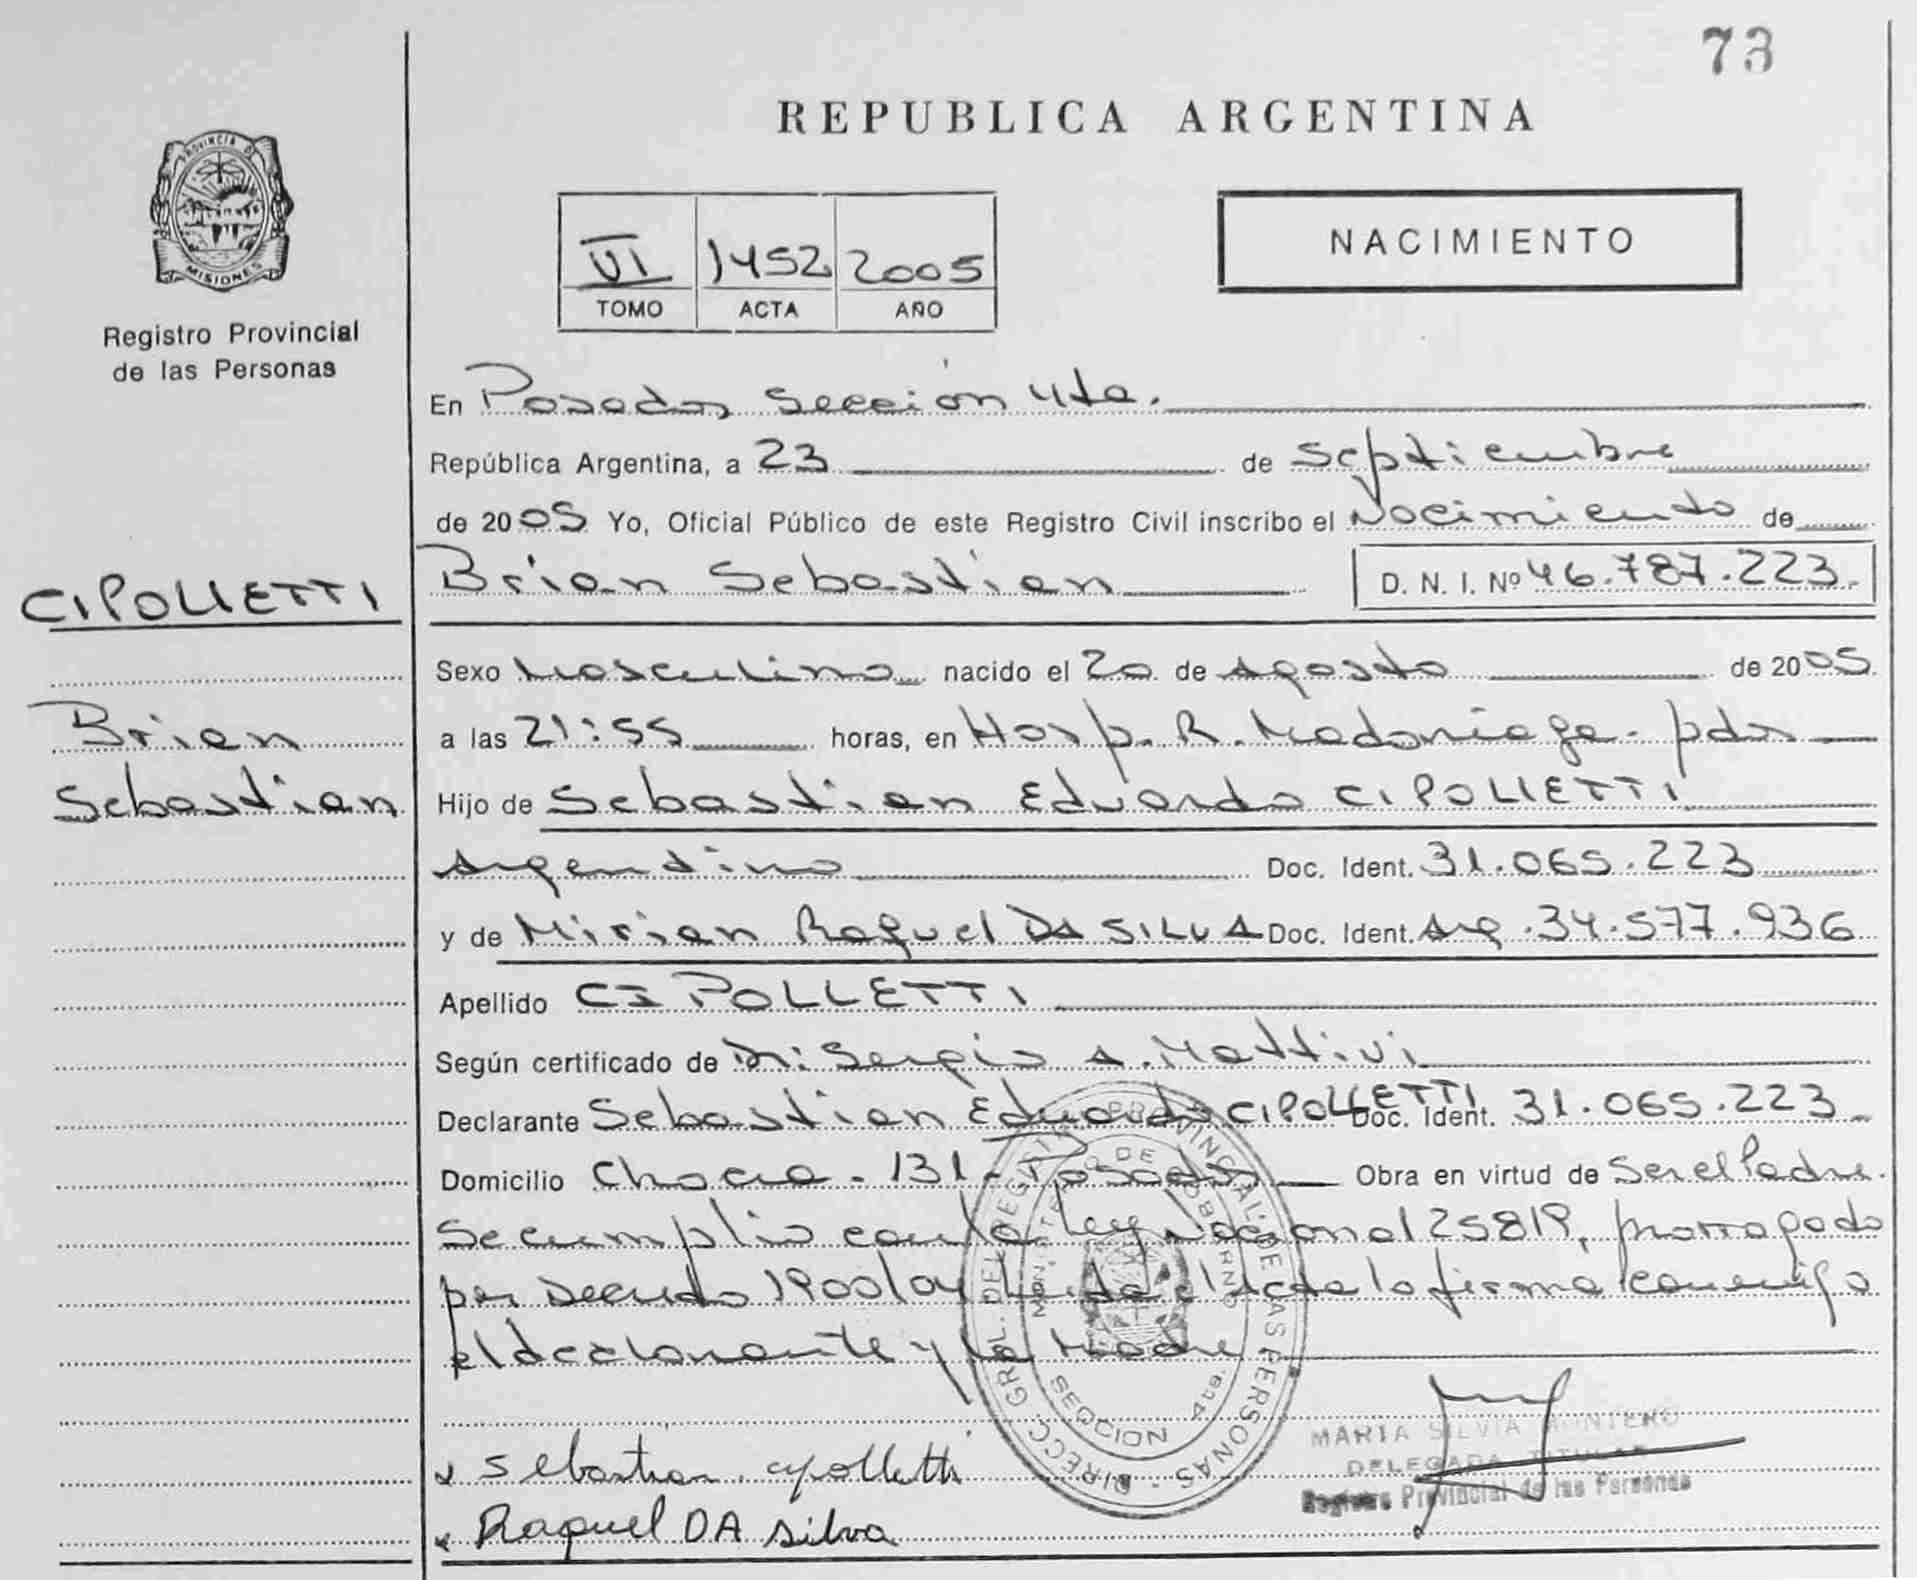 73
REPUBLICA ARGENTINA
PROVINCIA DE
MISIONES
Registro Provincial
de las Personas
VI 1452 2005
TOMO ACTA AÑO
NACIMIENTO
En Posadas Sección 4ta.
República Argentina, a 23 de Septiembre
de 2005 Yo, Oficial Público de este Registro Civil inscribo el Nacimiento de
Brian Sebastian D. N. I. Nº 46.787.223.-
CIPOLLETTI
Brian
Sebastian
Sexo Masculino nacido el 20 de Agosto de 2005
a las 21:55 horas, en Hosp. R. Madariaga - pdas
Hijo de Sebastian Eduardo CIPOLLETTI
Argentino Doc. Ident. 31.065.223
y de Mirian Raquel DA SILVA Doc. Ident. Arg. 34.577.936
Apellido CIPOLLETTI
Según certificado de Dr: Sergio A. Mattivi
Declarante Sebastian Eduardo CIPOLLETTI Doc. Ident. 31.065.223
Domicilio Chacra - 131 - Posadas Obra en virtud de Ser el Padre.
Se cumplio con la Ley Nacional 25819, prorrogado
por Decreto 1900/04 Leida el acta la firma conmigo
el declarante y la Madre
DIRECC. GRAL. DEL REGISTRO PROVINCIAL DE LAS PERSONAS
MINISTERIO DE GOBIERNO
SECCION 4ta.
Sebastian Cipolletti
Raquel DA Silva
MARIA SILVIA MONTERO
DELEGADA TITULAR
Registro Provincial de las Personas